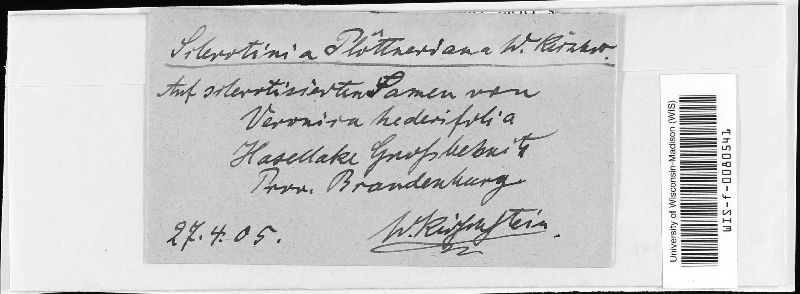 Sclerotinia Plöttneriana W. Kirschst.
Auf sclerotisierten Samen von
Veronica hederifolia
Hasellake Großbehnitz
Prov. Brandenburg.
27.4.05. W. Kirschstein.
University of Wisconsin-Madison (WIS)
WIS-f-0080541